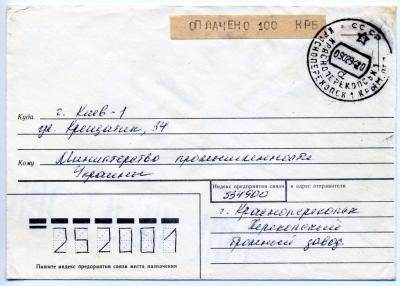 ОПЛАЧЕНО 100 КРБ
СССР
КРАСНОПЕРЕКОПСК 1 КРЫМ. ОБЛ.
Куда г. Киев-1
ул. Крещатик, 34
Кому Министерство промышленности
Украины
Индекс предприятия связи и адрес отправителя
334900
г. Красноперекопск
Перекопский
бромный завод.
252001
Пишите индекс предприятия связи места назначения